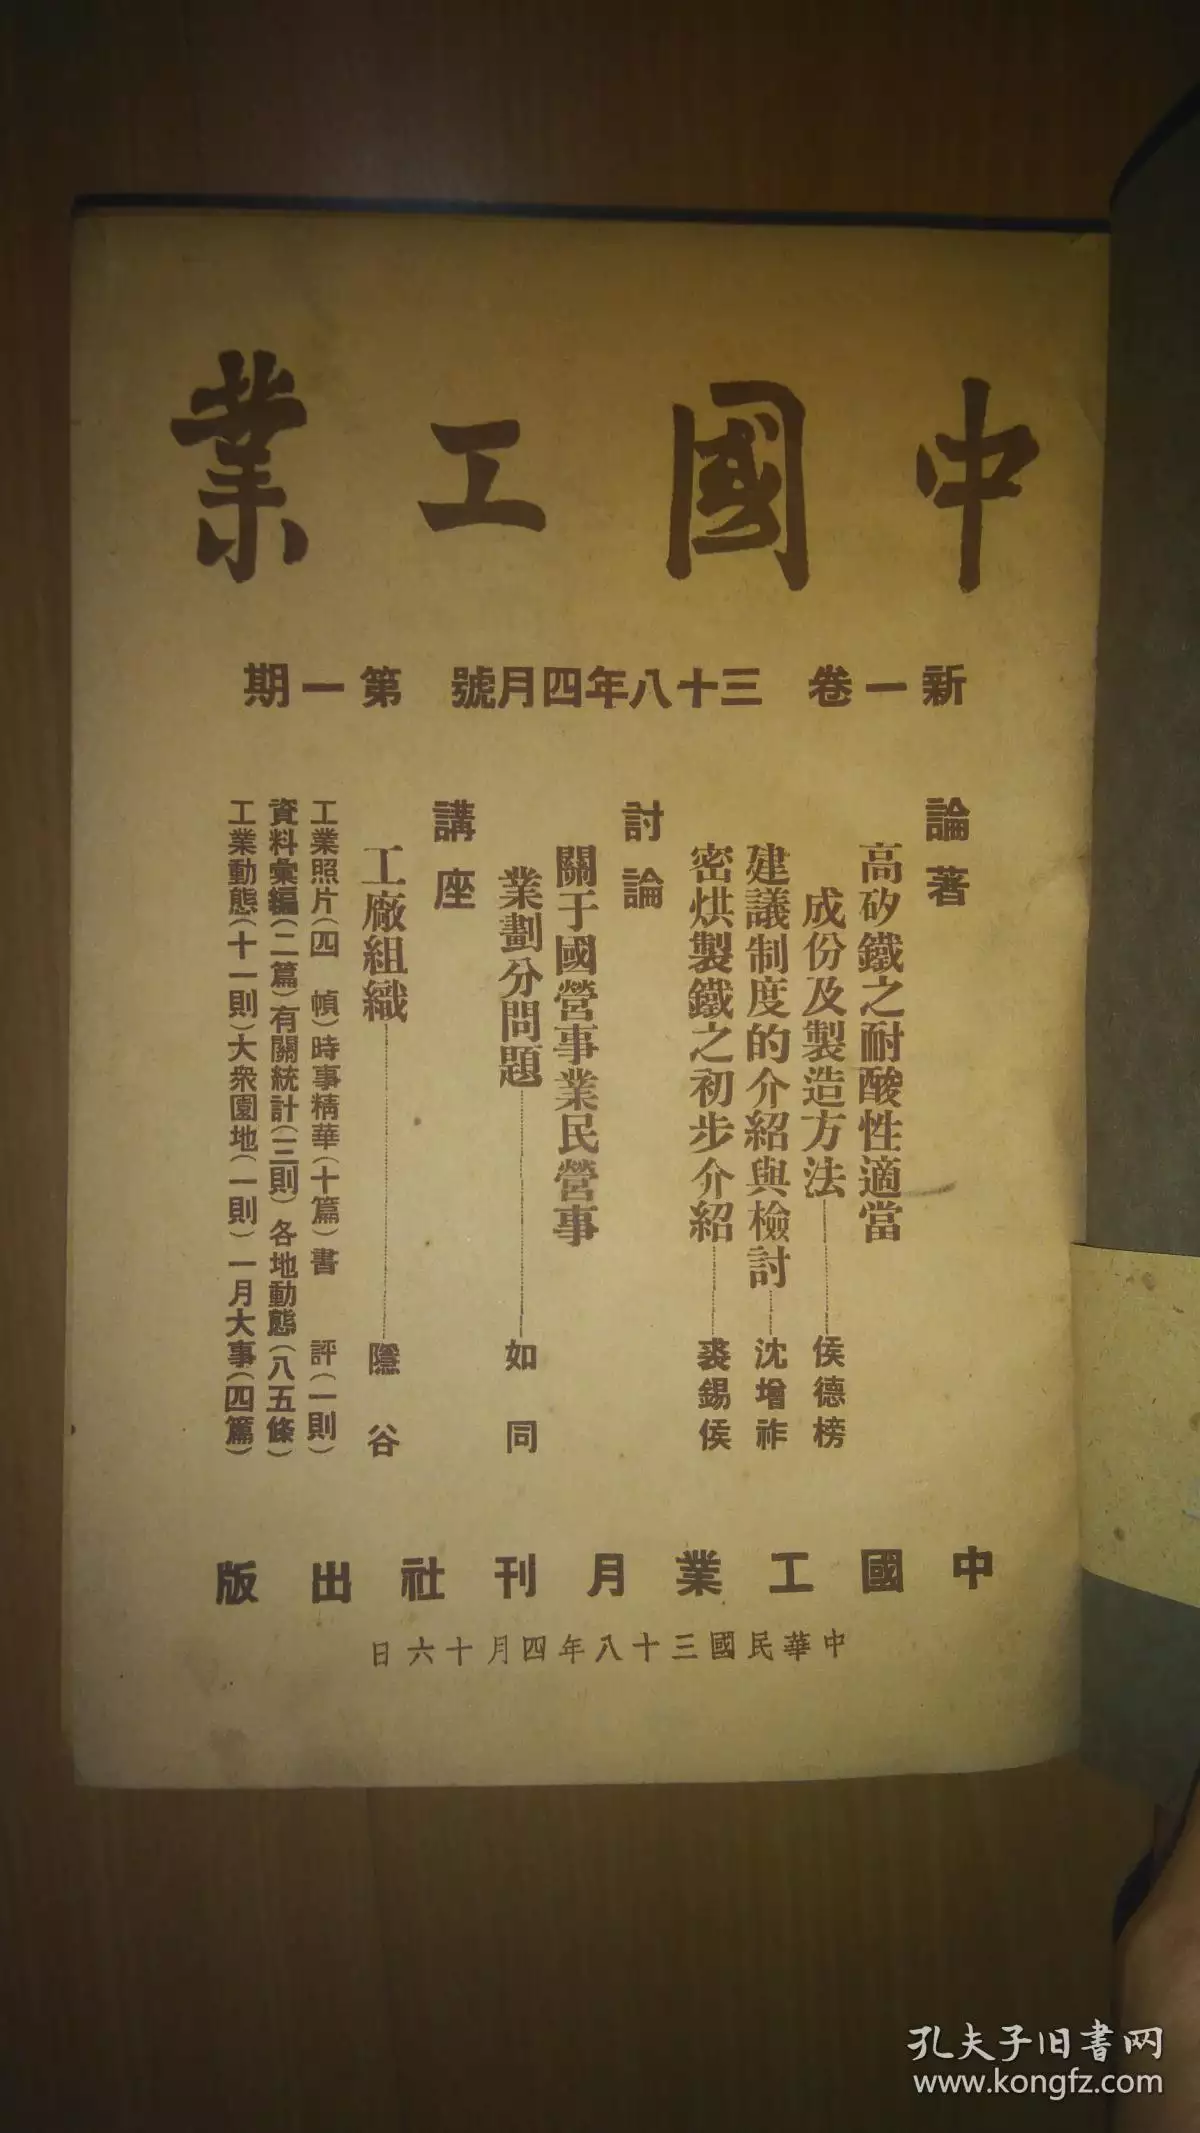 中國工業
新一卷 三十八年四月號 第一期
論著
高矽鐵之耐酸性適當
成份及製造方法 侯德榜
建議制度的介紹與檢討 沈增祚
密烘製鐵之初步介紹 裘錫侯
討論
關于國營事業民營事
業劃分問題 如同
講座
工廠組織 隱谷
工業照片(四幀)時事精華(十篇)書評(一則)
資料彙編(二篇)有關統計(三則)各地動態(八五條)
工業動態(十一則)大衆園地(一則)一月大事(四篇)
中國工業月刊社出版
中華民國三十八年四月十六日
孔夫子旧书网
www.kongfz.com